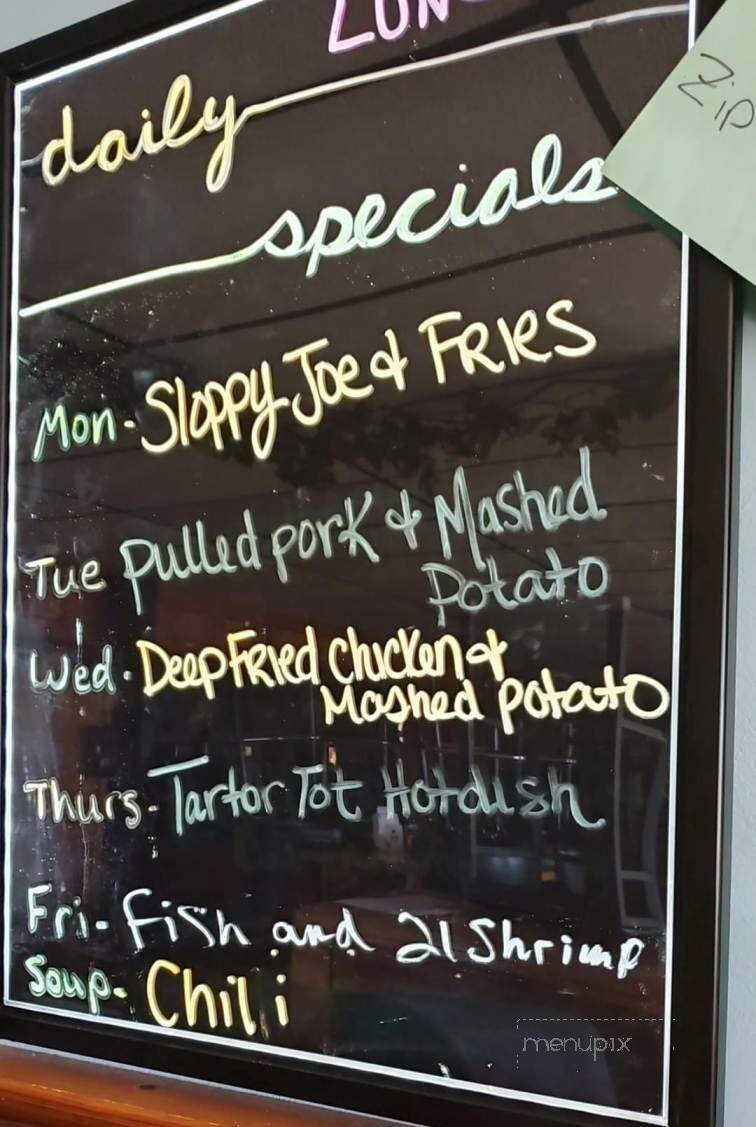 LUN
Zip
daily
specials
Mon- Sloppy Joe & Fries
Tue pulled pork & Mashed
Potato
Wed. Deep Fried Chicken &
Mashed potato
Thurs- Tartor Tot Hotdish
Fri- fish and 21 Shrimp
Soup- Chili
menupix